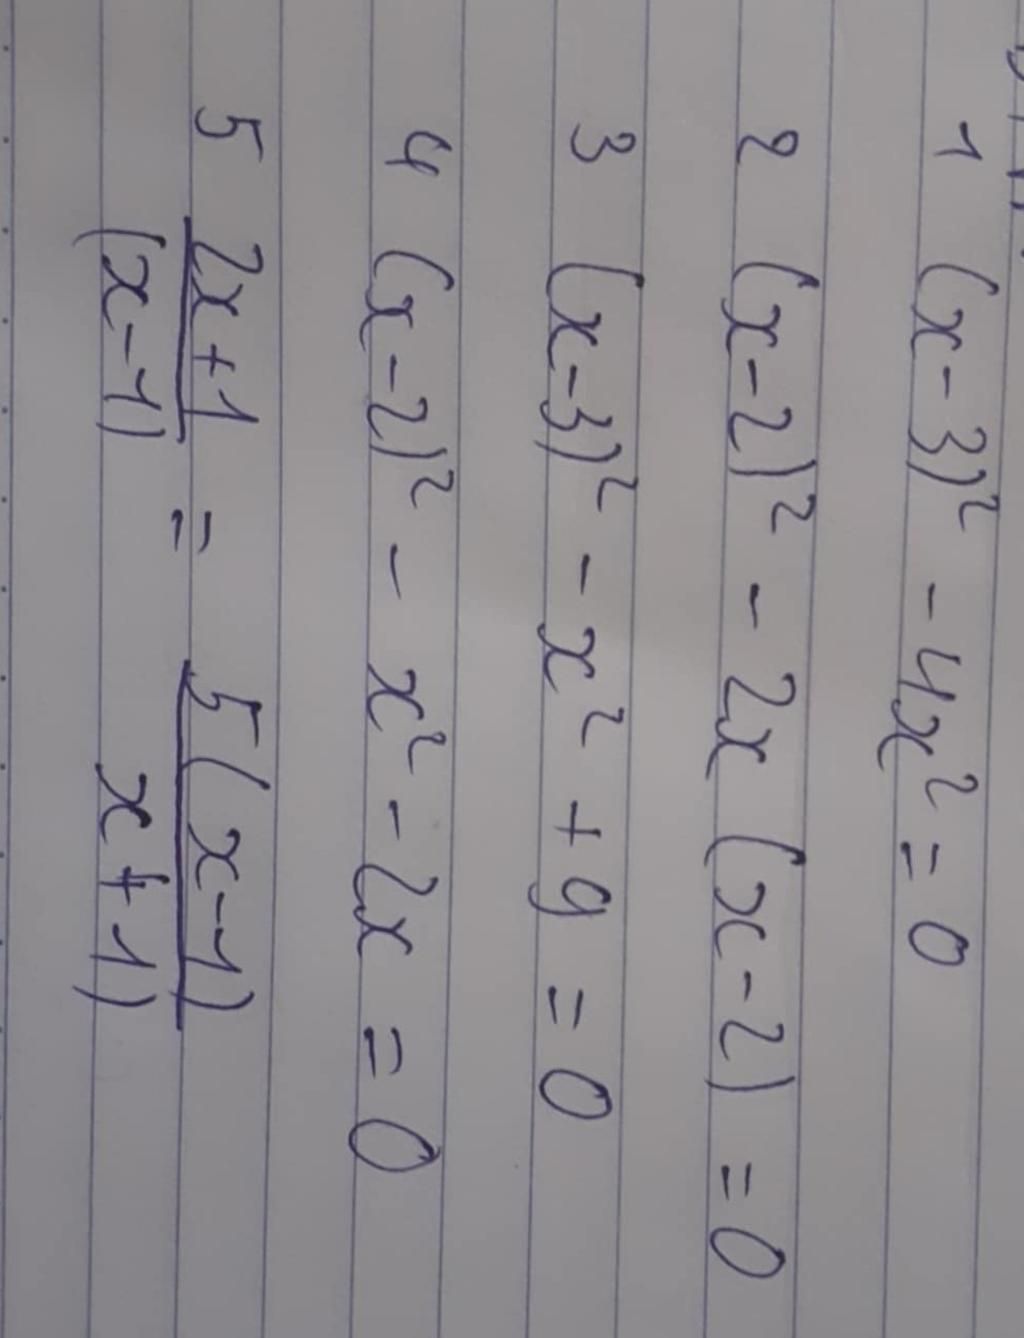 1 (x-3)² - 4x² = 0
2 (x-2)² - 2x (x-2) = 0
3 (x-3)² - x² + 9 = 0
4 (x-2)² - x² - 2x = 0
5 2x+1/(x-1) = 5(x-1)/x+1)